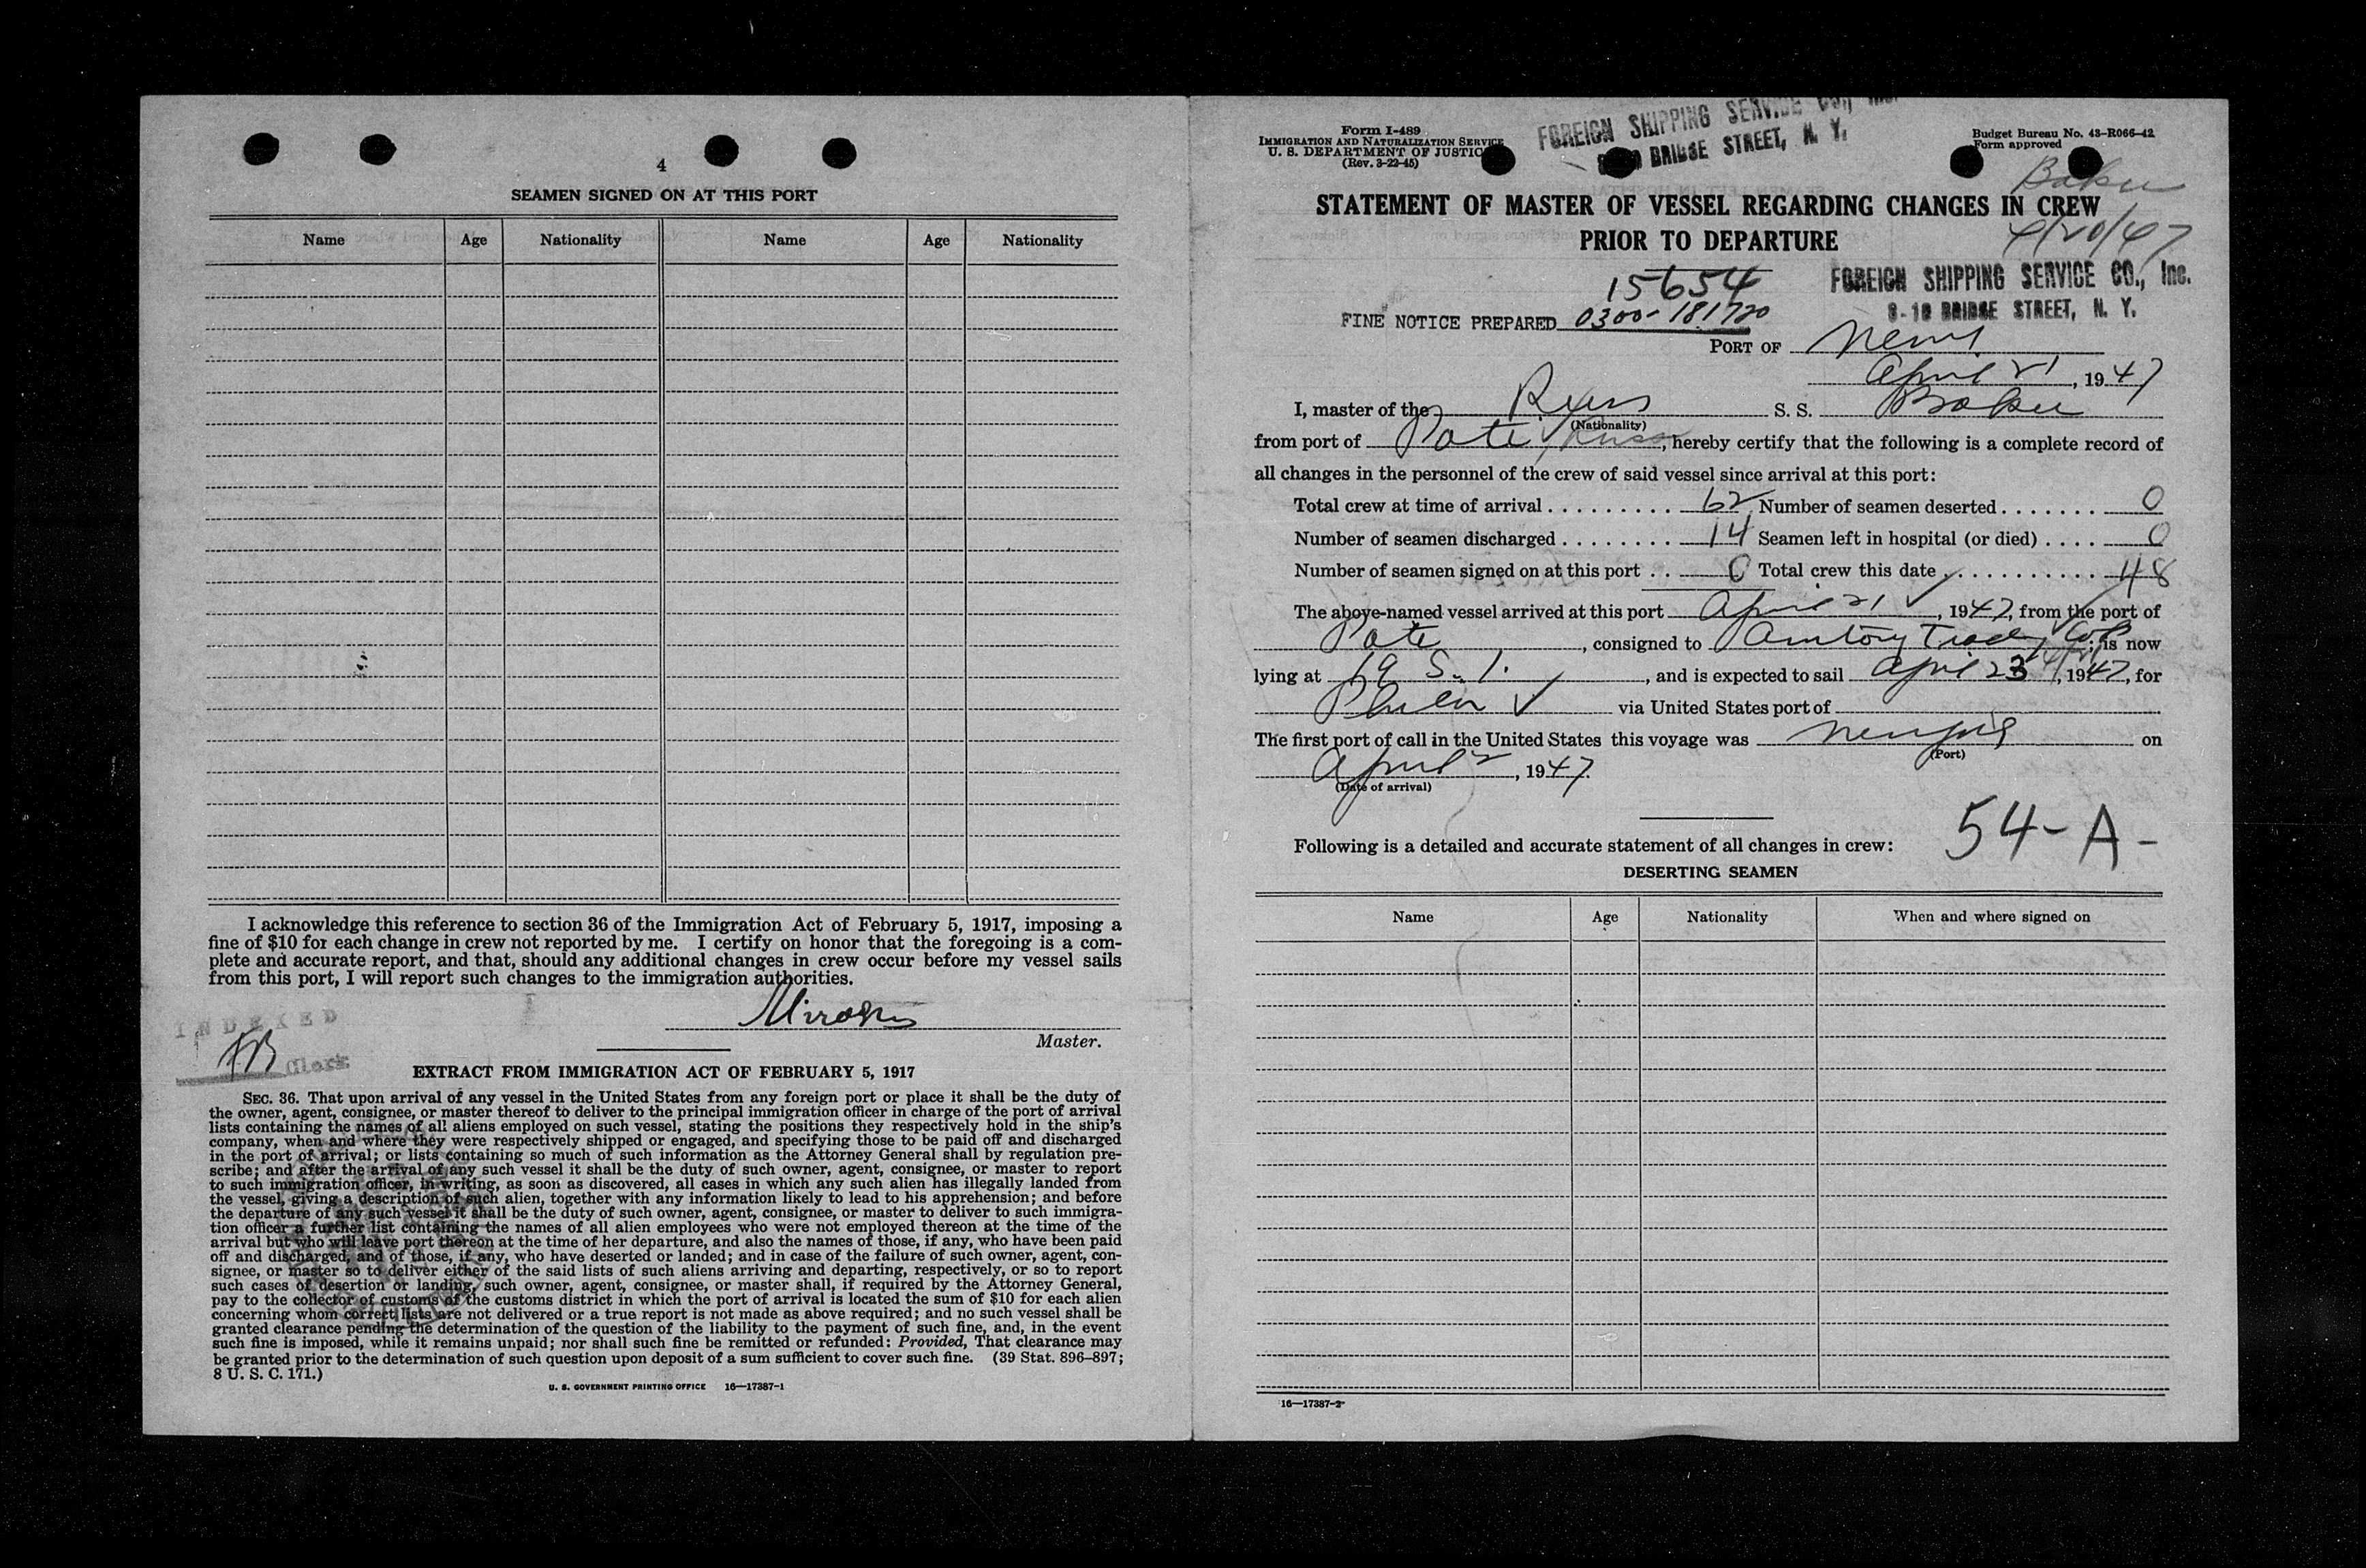 4
SEAMEN SIGNED ON AT THIS PORT
Name Age Nationality Name Age Nationality
I acknowledge this reference to section 36 of the Immigration Act of February 5, 1917, imposing a
fine of $10 for each change in crew not reported by me. I certify on honor that the foregoing is a com-
plete and accurate report, and that, should any additional changes in crew occur before my vessel sails
from this port, I will report such changes to the immigration authorities.
Master.
INDEXED
Clerk
EXTRACT FROM IMMIGRATION ACT OF FEBRUARY 5, 1917
SEC. 36. That upon arrival of any vessel in the United States from any foreign port or place it shall be the duty of
the owner, agent, consignee, or master thereof to deliver to the principal immigration officer in charge of the port of arrival
lists containing the names of all aliens employed on such vessel, stating the positions they respectively hold in the ship's
company, when and where they were respectively shipped or engaged, and specifying those to be paid off and discharged
in the port of arrival; or lists containing so much of such information as the Attorney General shall by regulation pre-
scribe; and after the arrival of any such vessel it shall be the duty of such owner, agent, consignee, or master to report
to such immigration officer, in writing, as soon as discovered, all cases in which any such alien has illegally landed from
the vessel, giving a description of such alien, together with any information likely to lead to his apprehension; and before
the departure of any such vessel it shall be the duty of such owner, agent, consignee, or master to deliver to such immigra-
tion officer a further list containing the names of all alien employees who were not employed thereon at the time of the
arrival but who will leave port thereon at the time of her departure, and also the names of those, if any, who have been paid
off and discharged, and of those, if any, who have deserted or landed; and in case of the failure of such owner, agent, con-
signee, or master so to deliver either of the said lists of such aliens arriving and departing, respectively, or so to report
such cases of desertion or landing, such owner, agent, consignee, or master shall, if required by the Attorney General,
pay to the collector of customs of the customs district in which the port of arrival is located the sum of $10 for each alien
concerning whom correct lists are not delivered or a true report is not made as above required; and no such vessel shall be
granted clearance pending the determination of the question of the liability to the payment of such fine, and, in the event
such fine is imposed, while it remains unpaid; nor shall such fine be remitted or refunded: Provided, That clearance may
be granted prior to the determination of such question upon deposit of a sum sufficient to cover such fine. (39 Stat. 896–897;
8 U. S. C. 171.)
U. S. GOVERNMENT PRINTING OFFICE 16—17387-1
Form I-489
IMMIGRATION AND NATURALIZATION SERVICE
U. S. DEPARTMENT OF JUSTICE
(Rev. 3-22-45)
FOREIGN SHIPPING SERVICE CO., Inc.
BRIDGE STREET, N. Y.
Budget Bureau No. 43-R066-42
Form approved
Baku
STATEMENT OF MASTER OF VESSEL REGARDING CHANGES IN CREW
PRIOR TO DEPARTURE
4/20/47
15654
FOREIGN SHIPPING SERVICE CO., Inc.
8-10 BRIDGE STREET, N. Y.
FINE NOTICE PREPARED 0300-181720
PORT OF
April 21, 1947
I, master of the Russ S. S. Baku
(Nationality)
from port of Poti Russ, hereby certify that the following is a complete record of
all changes in the personnel of the crew of said vessel since arrival at this port:
Total crew at time of arrival 62 Number of seamen deserted 0
Number of seamen discharged 14 Seamen left in hospital (or died) 0
Number of seamen signed on at this port 0 Total crew this date 48
The above-named vessel arrived at this port April 21, 1947, from the port of
Poti, consigned to Amtorg Trading Corp; is now
lying at 19 S. I., and is expected to sail April 23, 1947, for
Phila via United States port of
The first port of call in the United States this voyage was New York on
(Port)
April 2, 1947.
(Date of arrival)
54-A-
Following is a detailed and accurate statement of all changes in crew:
DESERTING SEAMEN
Name Age Nationality When and where signed on
16—17387-2